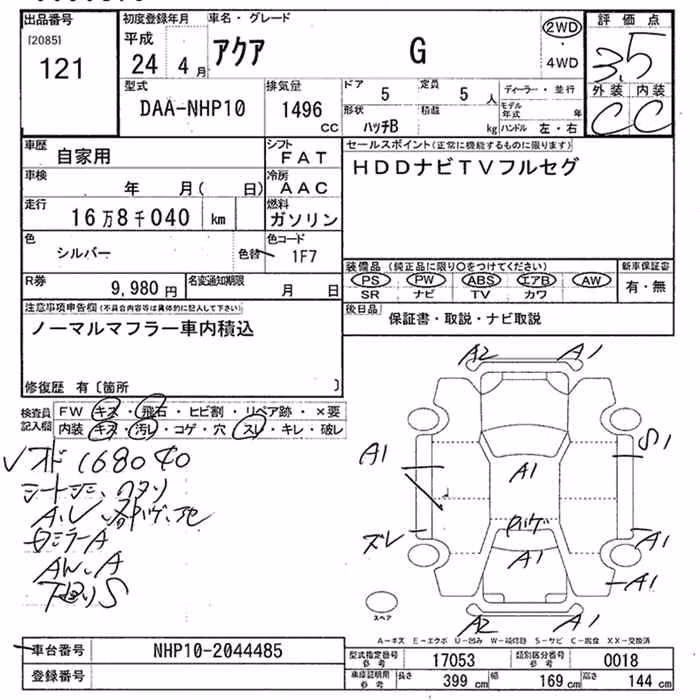 出品番号
[2085]
121
初度登録年月
平成
24 4月
車名・グレード
アクア G
2WD
・
4WD
評価点
3.5
外装 内装
C C
型式
DAA-NHP10
排気量
1496
CC
ドア 5
定員 5 人
形状 ハッチB
積載 kg
ディーラー・並行
モデル年式 年
ハンドル 左・右
車歴 自家用
シフト FAT
車検 年 月( 日)
冷房 AAC
走行 16万8千040 km
燃料 ガソリン
色 シルバー
色替
色コード 1F7
R券 9,980円
名変通知期限 月 日
セールスポイント(正常に機能するものに限ります)
HDDナビTVフルセグ
装備品(純正品に限り○をつけてください)
新車保証書
PS PW ABS エアB AW
SR ナビ TV カワ
有・無
後日品 保証書・取説・ナビ取説
注意事項申告欄(不具合内容等は具体的に記入して下さい)
ノーマルマフラー車内積込
修復歴 有〔箇所 〕
検査員
記入欄
FW キズ・飛石・ヒビ割・リペア跡・×要
内装 キズ・汚レ・コゲ・穴・スレ・キレ・破レ
168040
A2 A1
A1
S1
A1
A1
ズレ
A1
A1
A2 A1
スペア
A-キズ E-エクボ U-凹み W-補修跡 S-サビ C-腐食 XX-交換済
車台番号 NHP10-2044485
登録番号
型式指定番号
参考
17053
類別区分番号
参考
0018
車庫証明用
参考
長さ 399 cm 幅 169 cm 高さ 144 cm